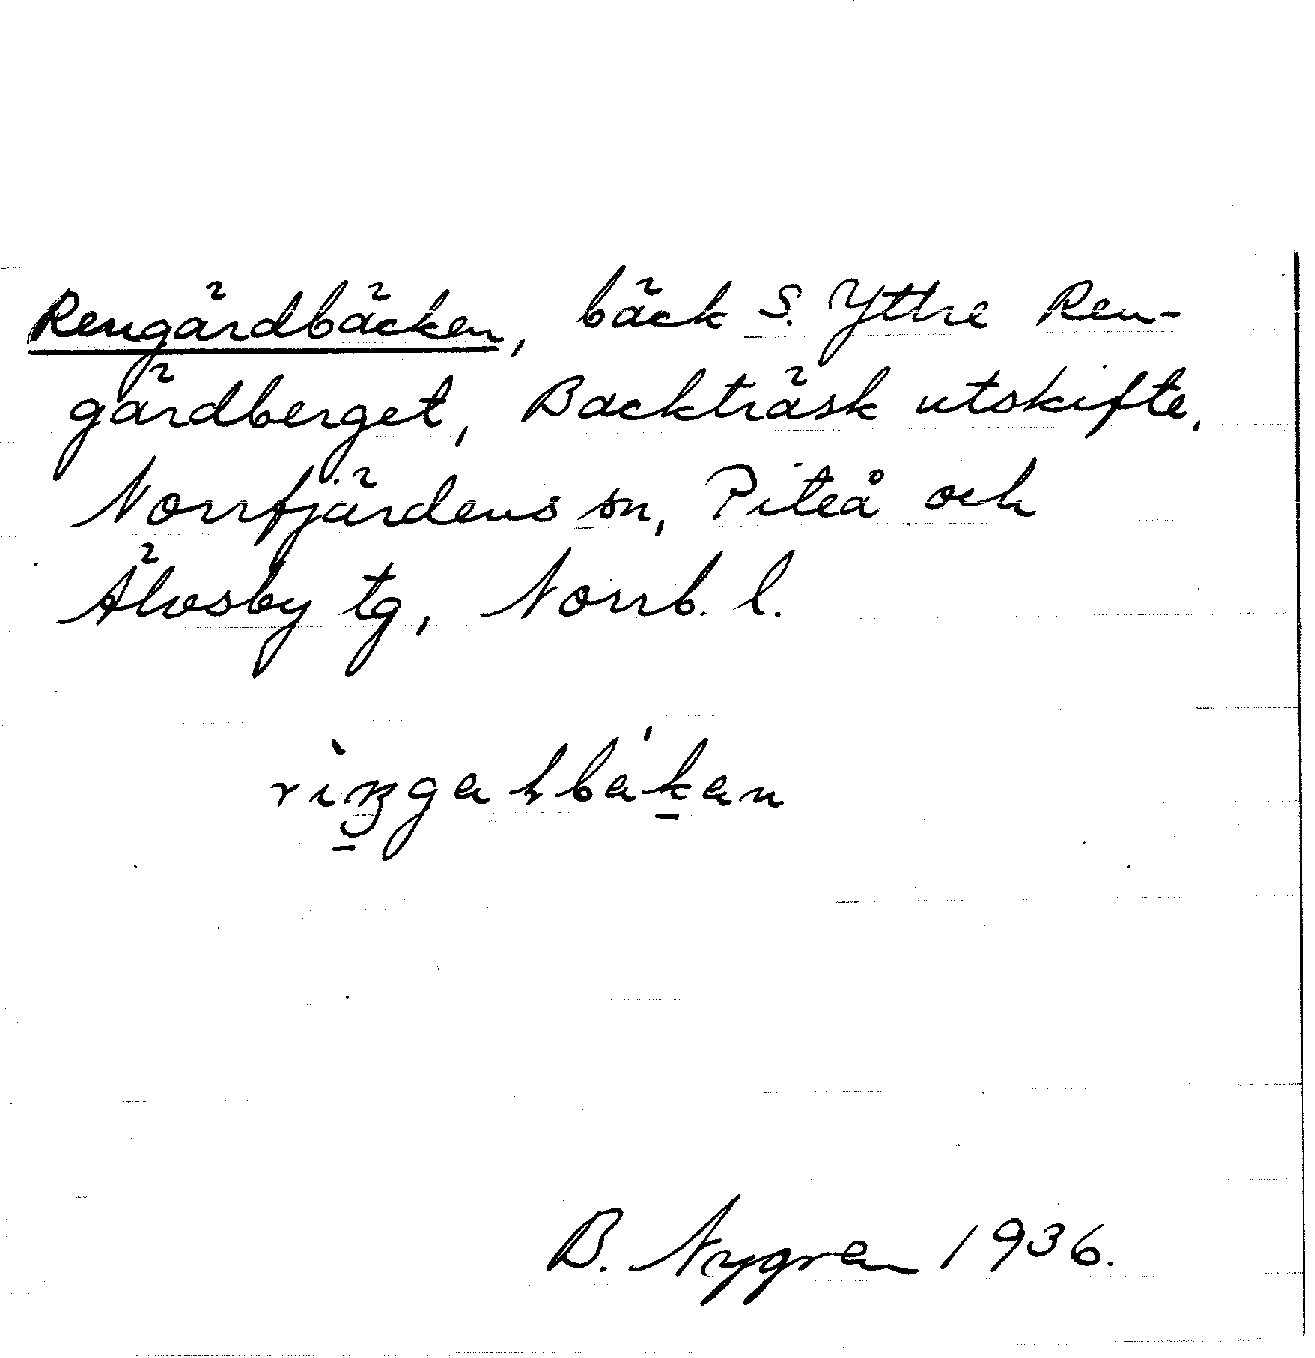 Rengärdbäcken, bäck S. Yttre Ren-
gärdberget, Backträsk utskifte,
Norrfjärdens sn, Piteå och
Älvsby tg, Norrb. l.
B. Nygren 1936.